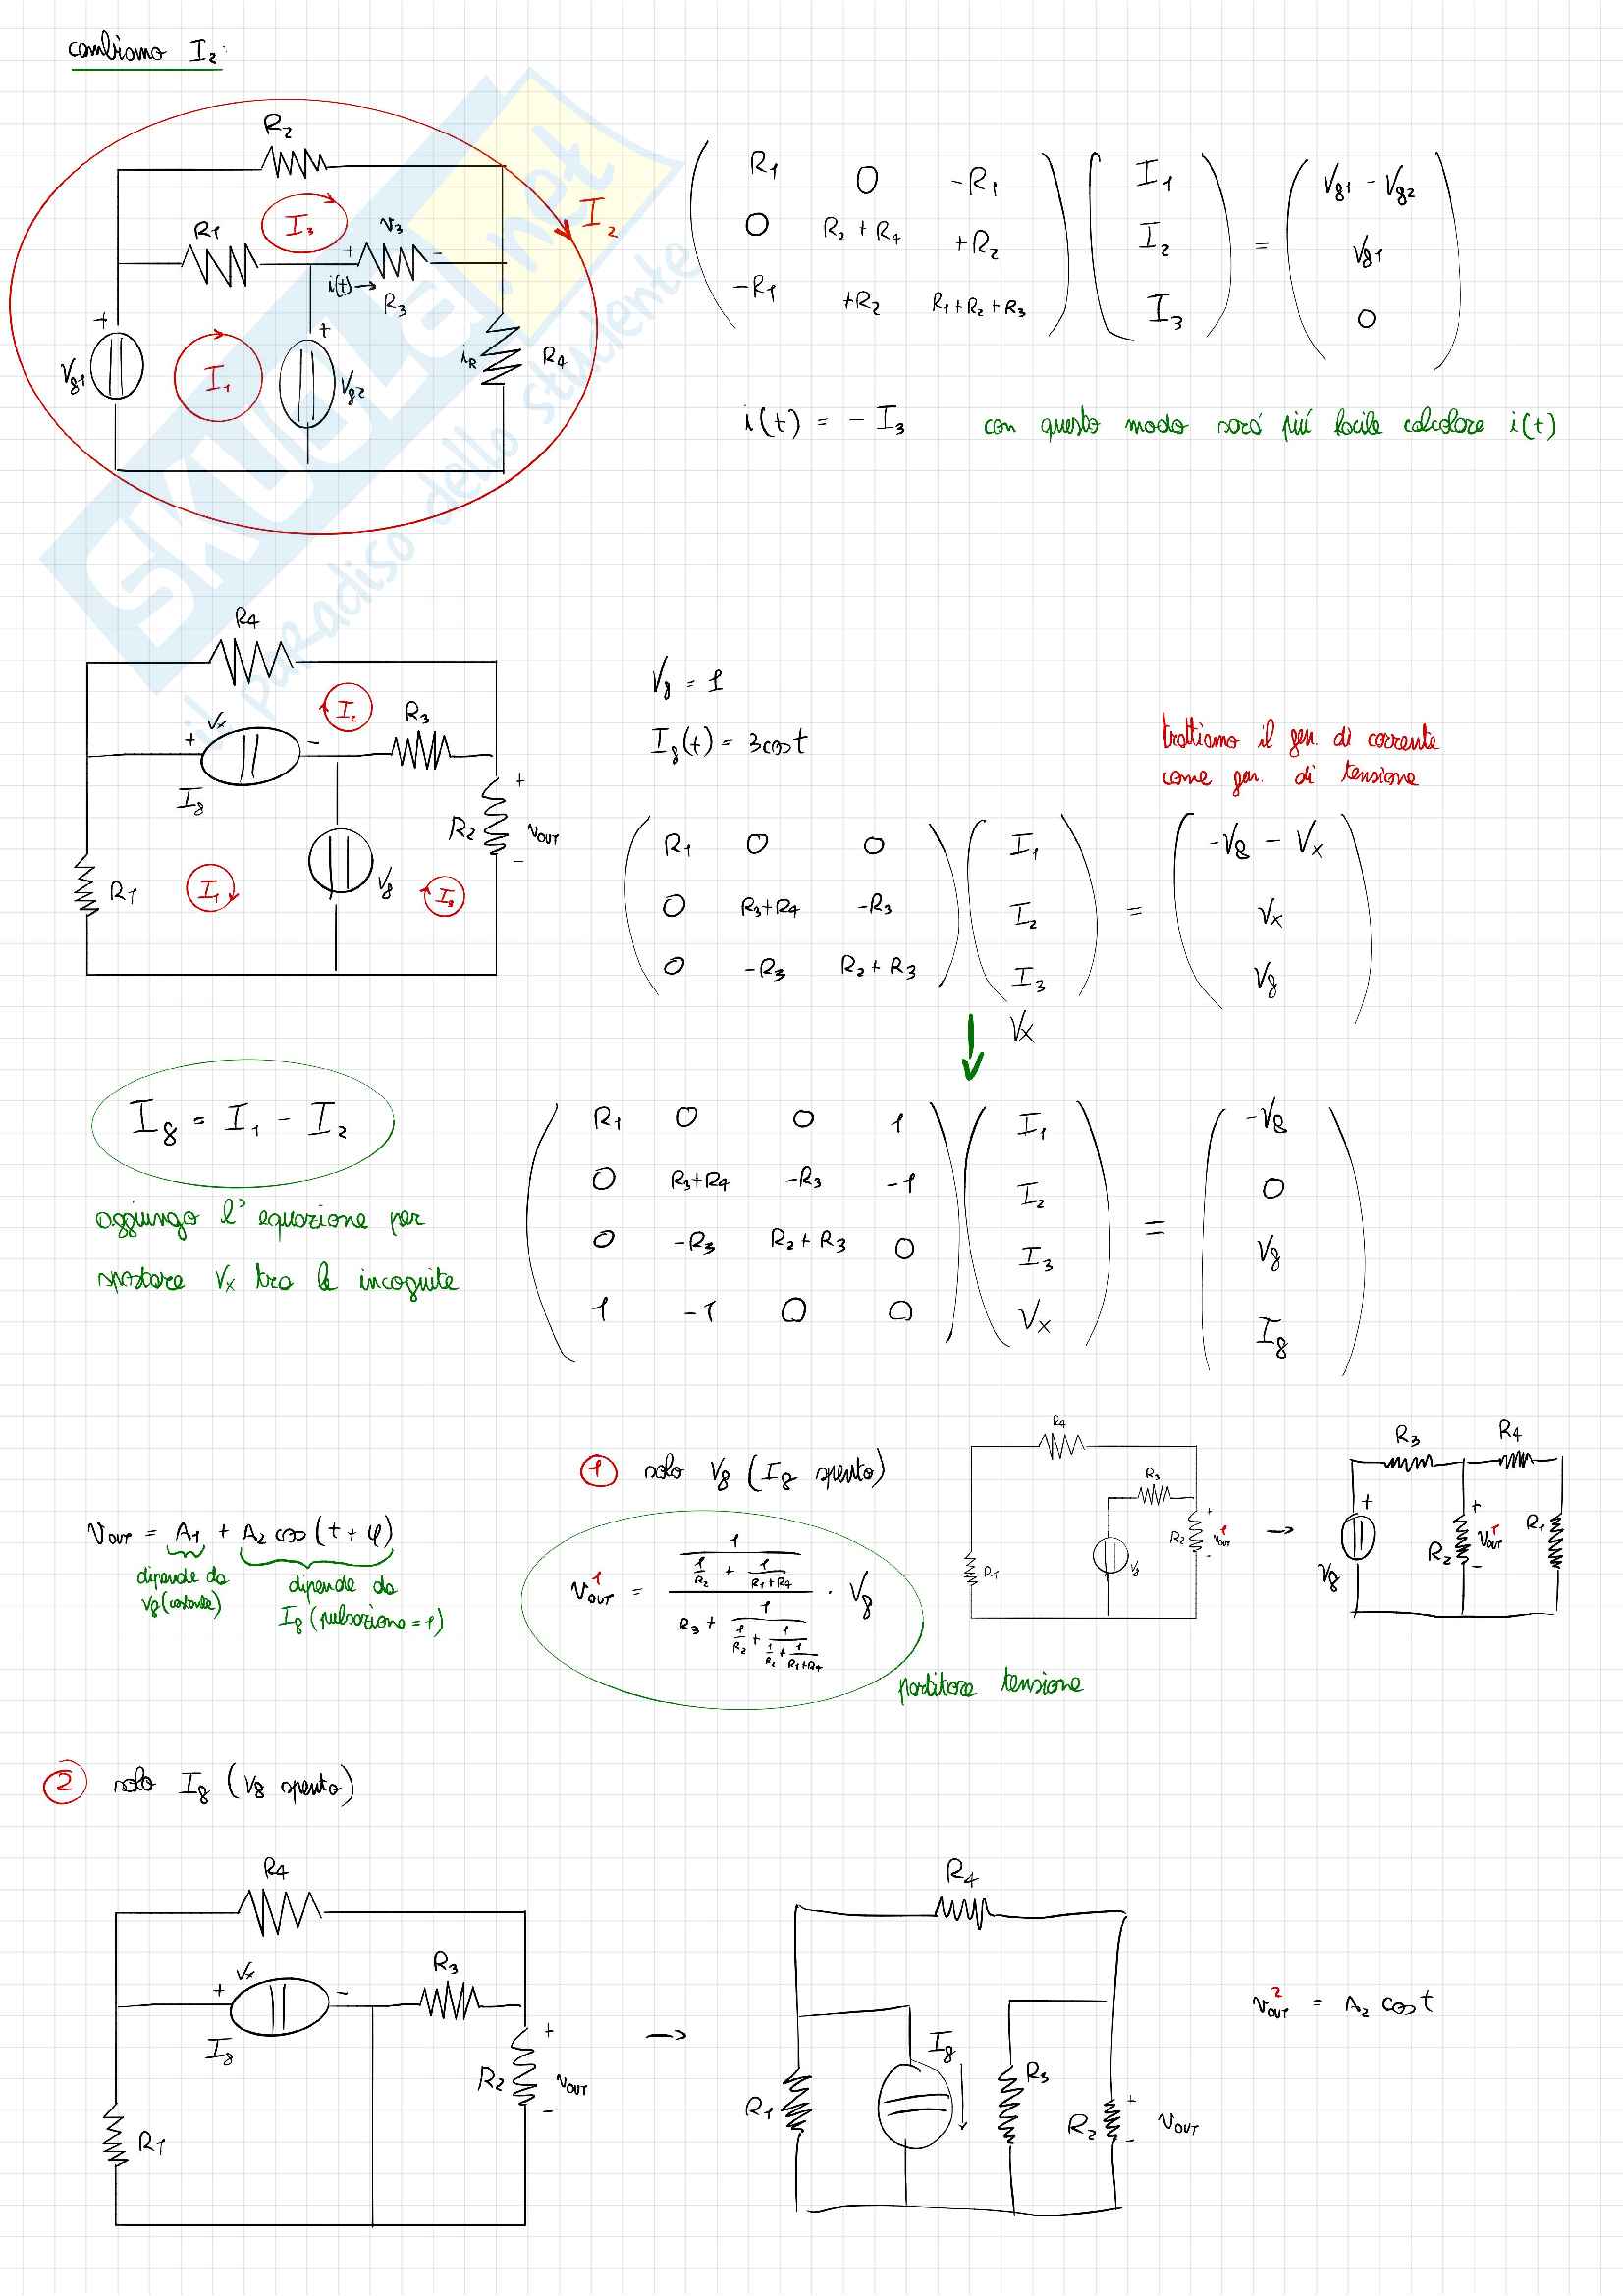 cambiamo I₂:
R₂
I₂
I₃
R₁
v₃
+ -
i(t)→
R₃
+
+
Vg1
I₁
Vg2
iR
R₄
R₁ 0 -R₁ I₁ Vg1 - Vg2
0 R₂ + R₄ +R₂ I₂ = Vg1
-R₁ +R₂ R₁+R₂+R₃ I₃ 0
i(t) = - I₃ con questo modo sarà più facile calcolare i(t)
SKUOLA.net
il paradiso dello studente
R₄
Vx
+ -
I₂
R₃
Ig
+
R₂ vOUT
-
R₁
I₁
Vg
I₃
Vg = 1
Ig(t) = 3cost
trattiamo il gen. di corrente
come gen. di tensione
R₁ 0 0 I₁ -Vg - Vx
0 R₃+R₄ -R₃ I₂ = Vx
0 -R₃ R₂+R₃ I₃ Vg
Vx
Ig = I₁ - I₂
aggiungo l'equazione per
spostare Vx tra le incognite
R₁ 0 0 1 I₁ -Vg
0 R₃+R₄ -R₃ -1 I₂ 0
0 -R₃ R₂+R₃ 0 I₃ = Vg
1 -1 0 0 Vx Ig
vOUT = A₁ + A₂ cos(t + φ)
dipende da
Vg (costante)
dipende da
Ig (pulsazione = 1)
① solo Vg (Ig spento)
v¹OUT = 1/(1/R₂ + 1/(R₁+R₄)) / (R₃ + 1/(1/R₂ + 1/(1/R₂ + 1/(R₁+R₄)))) · Vg
partitore tensione
R₄
R₃
+
R₂ v¹OUT
-
R₁
Vg
→
R₃ R₄
+ +
R₂ v¹OUT R₁
-
Vg
② solo Ig (Vg spento)
R₄
Vx
+ -
R₃
Ig
+
R₂ vOUT
-
R₁
→
R₄
Ig
R₃
R₁
+
R₂ vOUT
-
v²OUT = A₂ cost